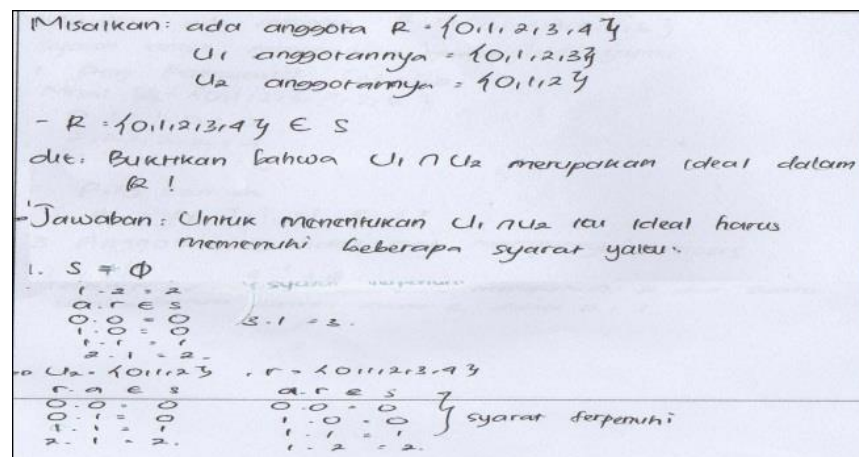 Misalkan: ada anggota R = {0,1,2,3,4}
U1 anggotannya = {0,1,2,3}
U2 anggotannya = {0,1,2}
- R = {0,1,2,3,4} ∈ S
dit: Buktikan bahwa U1 ∩ U2 merupakan ideal dalam
R !
- Jawaban: Untuk menentukan U1 ∩ U2 itu ideal harus
memenuhi beberapa syarat yaitu:
1. S ≠ Φ
1 . 2 = 2
a . r ∈ S
0 . 0 = 0
1 . 0 = 0 3 . 1 = 3.
1 . 1 = 1
2 . 1 = 2.
U2 = {0,1,2} , r = {0,1,2,3,4}
r . a ∈ S a . r ∈ S
0 . 0 = 0 0 . 0 = 0
0 . 1 = 0 1 . 0 = 0 } syarat terpenuhi
1 . 1 = 1 1 . 1 = 1
2 . 1 = 2. 1 . 2 = 2.